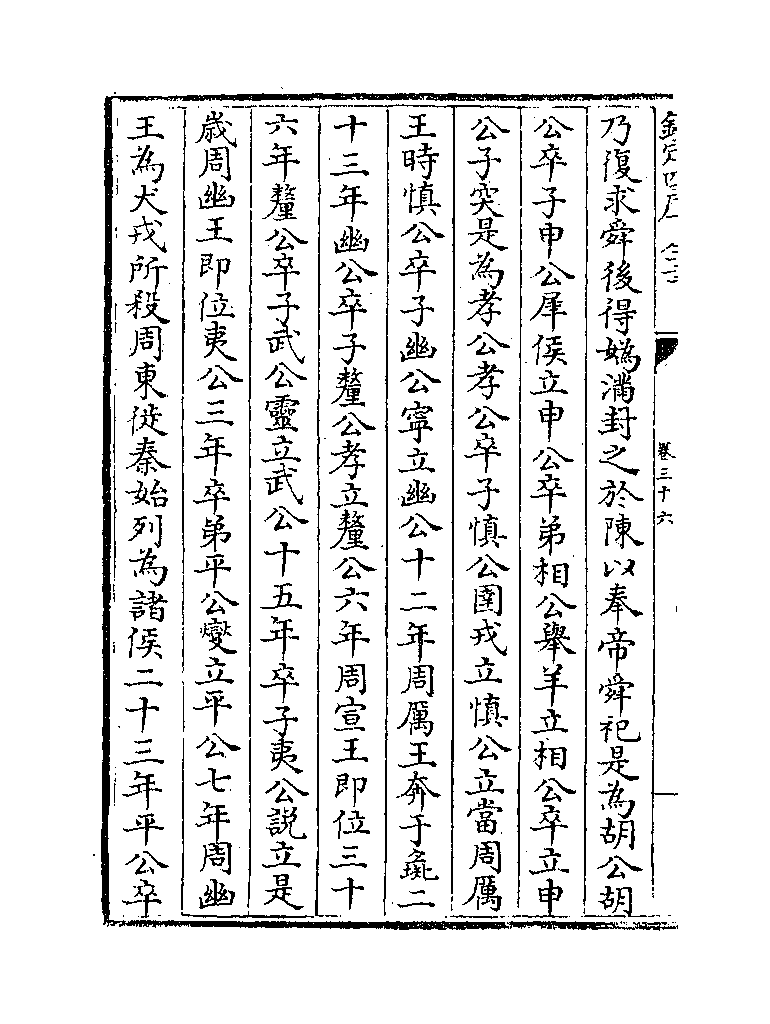 乃復求舜後得媯滿封之於陳以奉帝舜祀是為胡公胡
公卒子申公犀侯立申公卒弟相公舉羊立相公卒立申
公子突是為孝公孝公卒子慎公圉戎立慎公立當周厲
王時慎公卒子幽公寧立幽公十二年周厲王奔于彘二
十三年幽公卒子釐公孝立釐公六年周宣王即位三十
六年釐公卒子武公靈立武公十五年卒子夷公說立是
歲周幽王即位夷公三年卒弟平公燮立平公七年周幽
王為犬戎所殺周東徙秦始列為諸侯二十三年平公卒
卷三十六